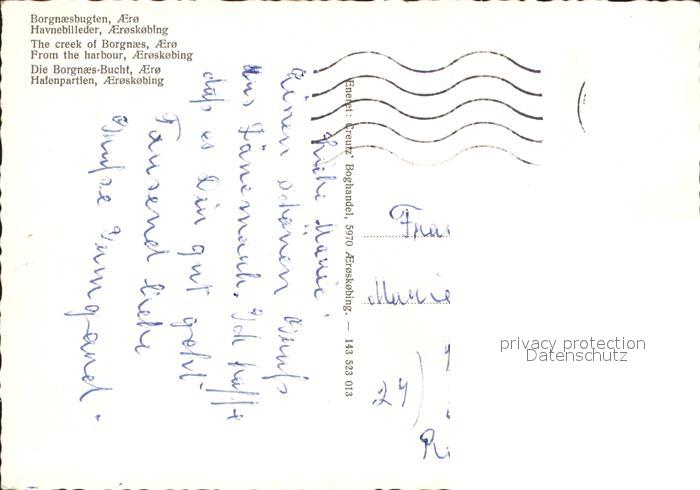 Borgnæsbugten, Ærø
Havnebilleder, Ærøskøbing
The creek of Borgnæs, Ærø
From the harbour, Ærøskøbing
Die Borgnæs-Bucht, Ærø
Hafenpartien, Ærøskøbing
Liebe Marie!
einen schönen Gruß
aus Dänemark. Ich hoffe
daß es Dir gut geht.
Tausend liebe
Grüße Irmgard.
Eneret: Creutz' Boghandel, 5970 Ærøskøbing. — 143 523 013
Frau
Marie
24)
privacy protection
Datenschutz